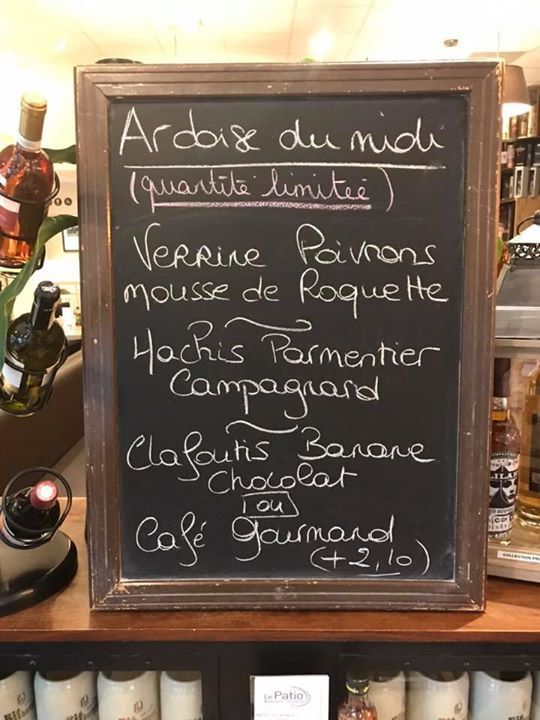 Ardoise du midi
(quantité limitée)
Verrine Poivrons
mousse de Roquette
Hachis Parmentier
Campagnard
Clafoutis Banane
Chocolat
ou
Café gourmand
(+2,10)
COLLECTION
Le Patio